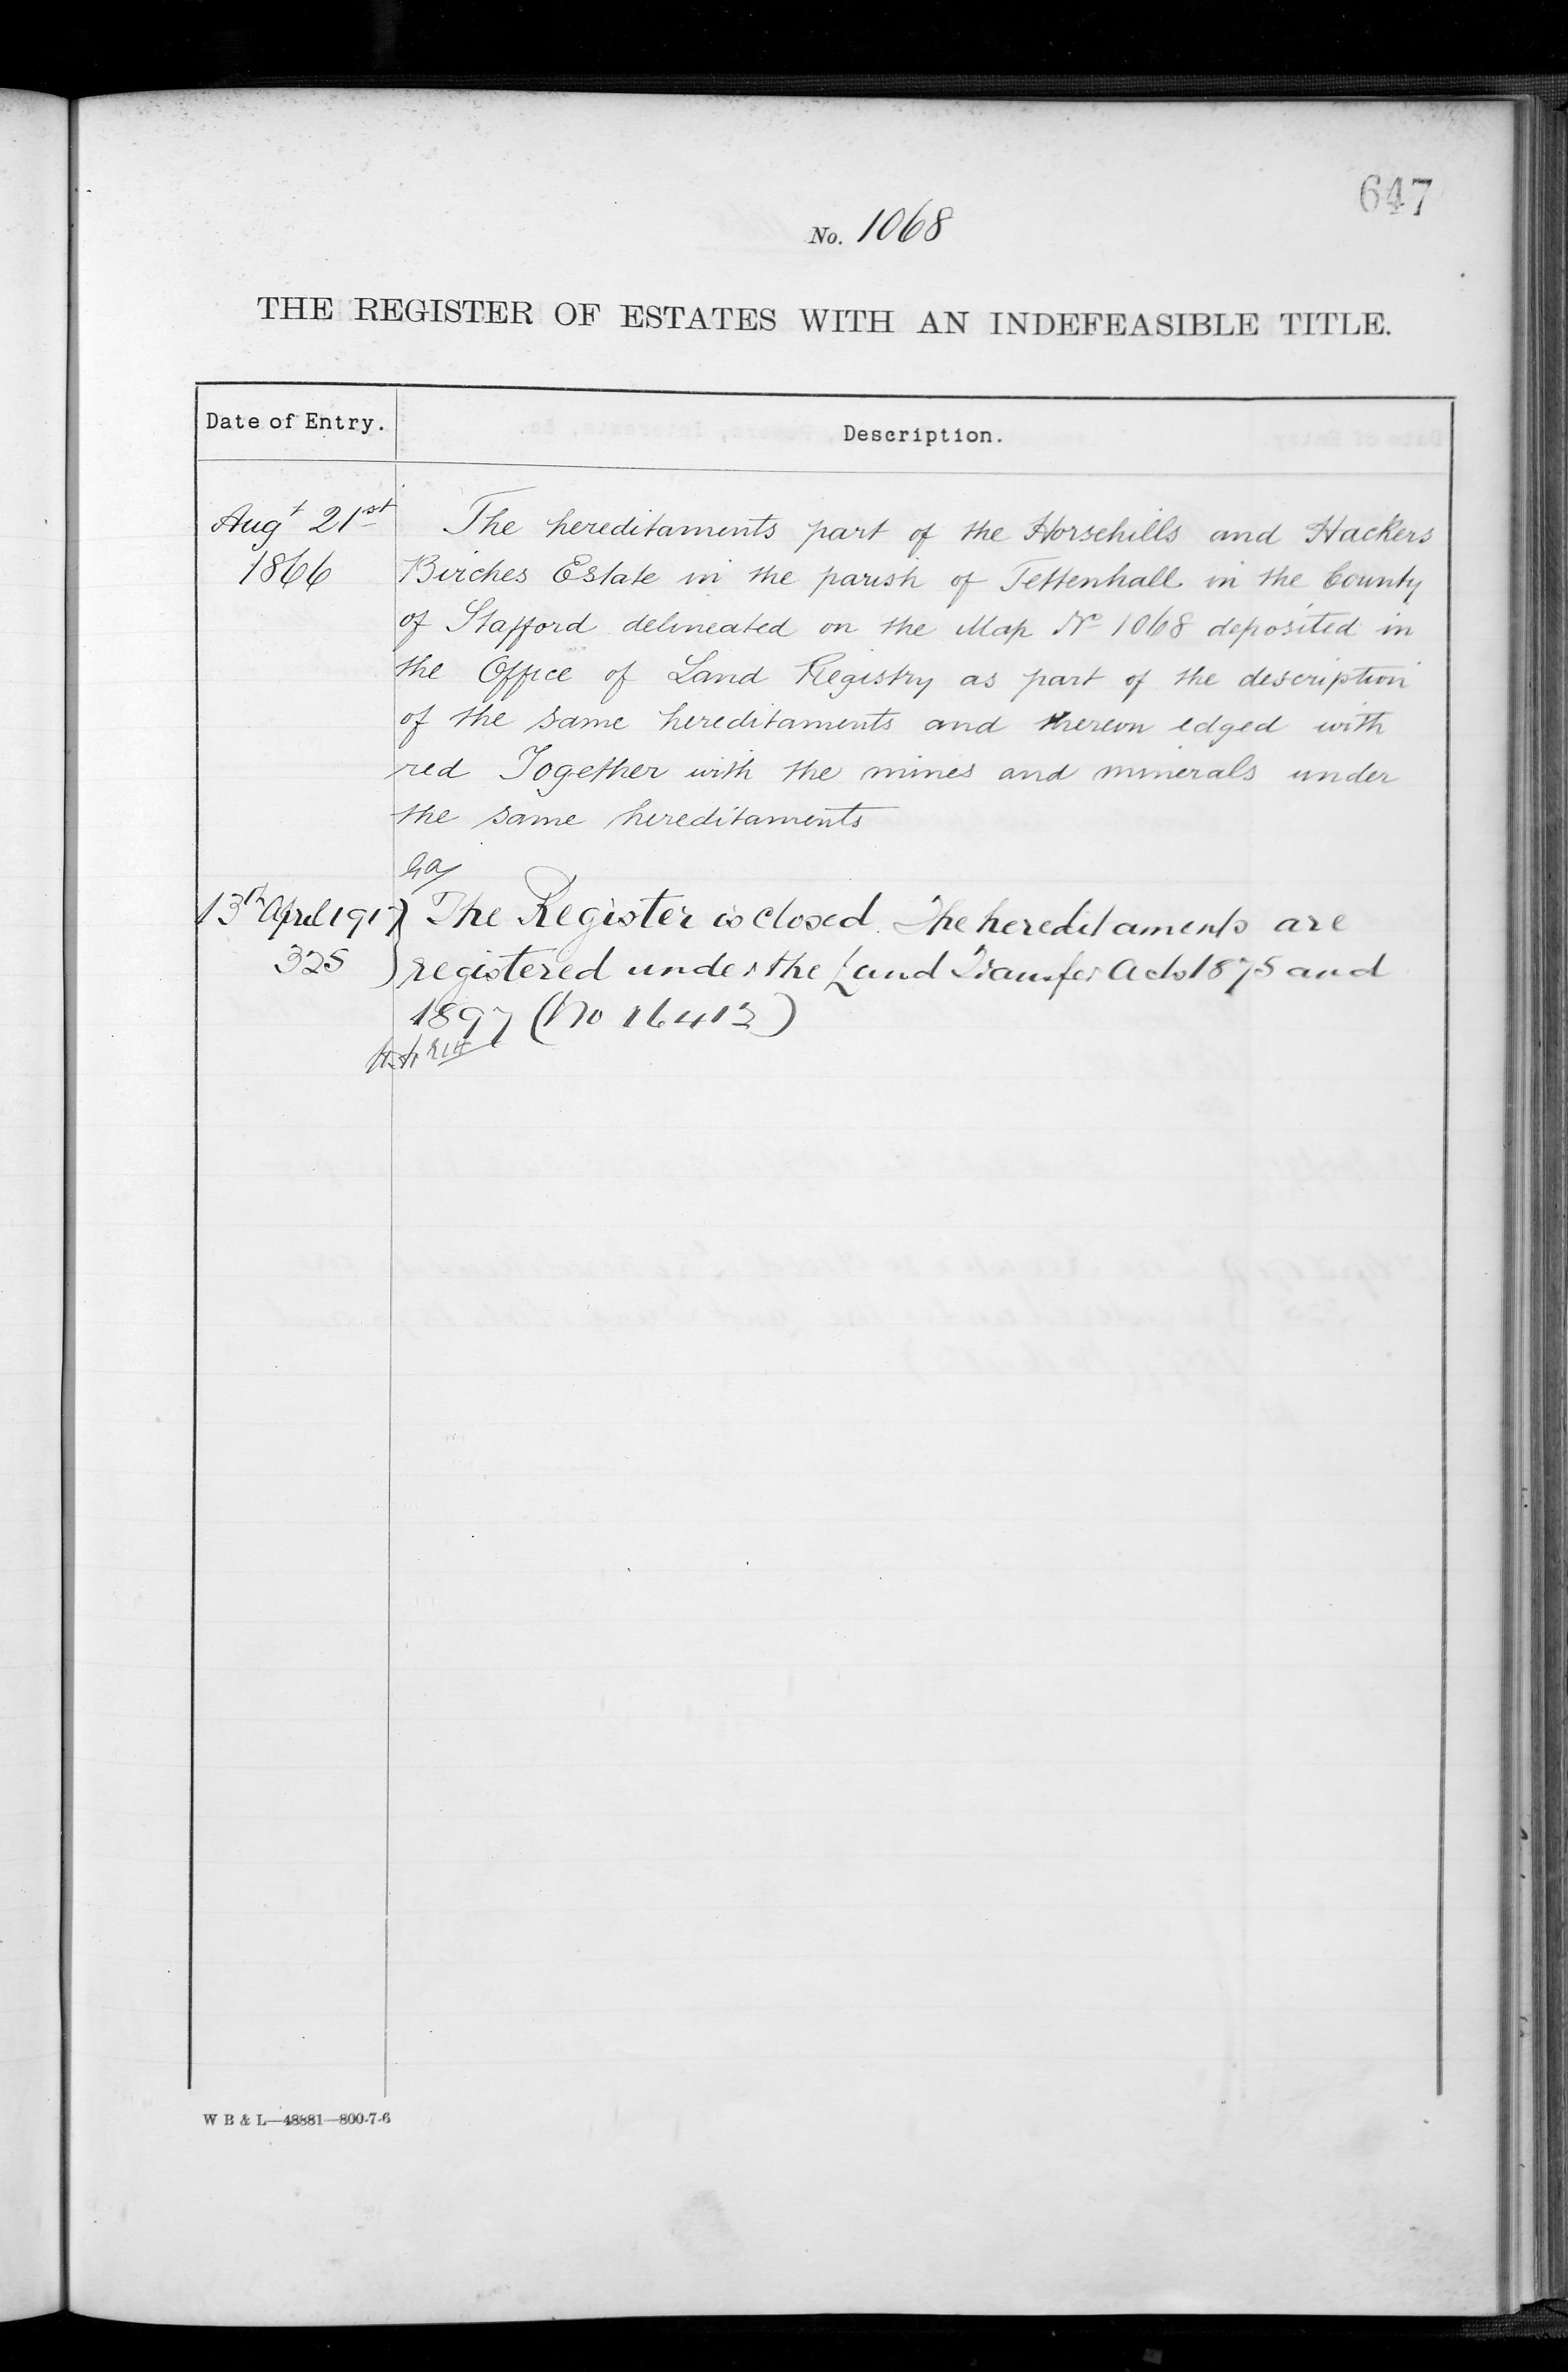 647
No. 1068
THE REGISTER OF ESTATES WITH AN INDEFEASIBLE TITLE.
Date of Entry.
Description.
Augt 21st
1866
The hereditaments part of the Horsehills and Hackers
Birches Estate in the parish of Tettenhall in the County
of Stafford delineated on the Map No 1068 deposited in
the Office of Land Registry as part of the description
of the same hereditaments and thereon edged with
red Together with the mines and minerals under
the same hereditaments
13th April 1917
325
The Register is closed. The hereditaments are
registered under the Land Transfer Acts 1875 and
1897 (No 16413)
W B & L—48881—800-7-6